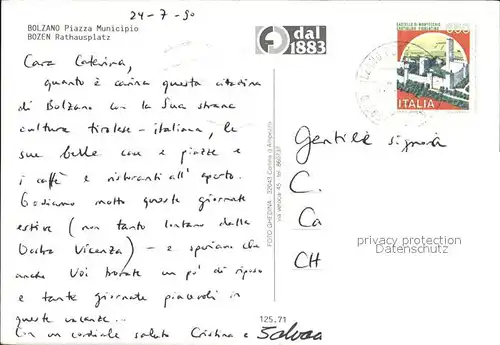 24-7-90
BOLZANO Piazza Municipio
BOZEN Rathausplatz
dal
1883
650
CASTELLO DI MONTECCHIO
CASTIGLION FIORENTINO
ITALIA
Cara Caterina,
quanto è carina questa cittadina
di Bolzano con la sua strana
cultura tirolese-italiana, le
sue belle case e piazze e
i caffè e ristoranti all' aperto.
Godiamo molto queste giornate
estive (non tanto lontano dalla
Vostra Vicenza) - e speriamo che
anche Voi trovate un po' di riposo
e tante giornate piacevoli in
queste vacanze.
Con un cordiale saluto Cristina e
Gentile signora
C.
Ca
CH
FOTO GHEDINA - 32043 Cortina d'Ampezzo
privacy protection
www.ansichtskarten-center.de
125.71